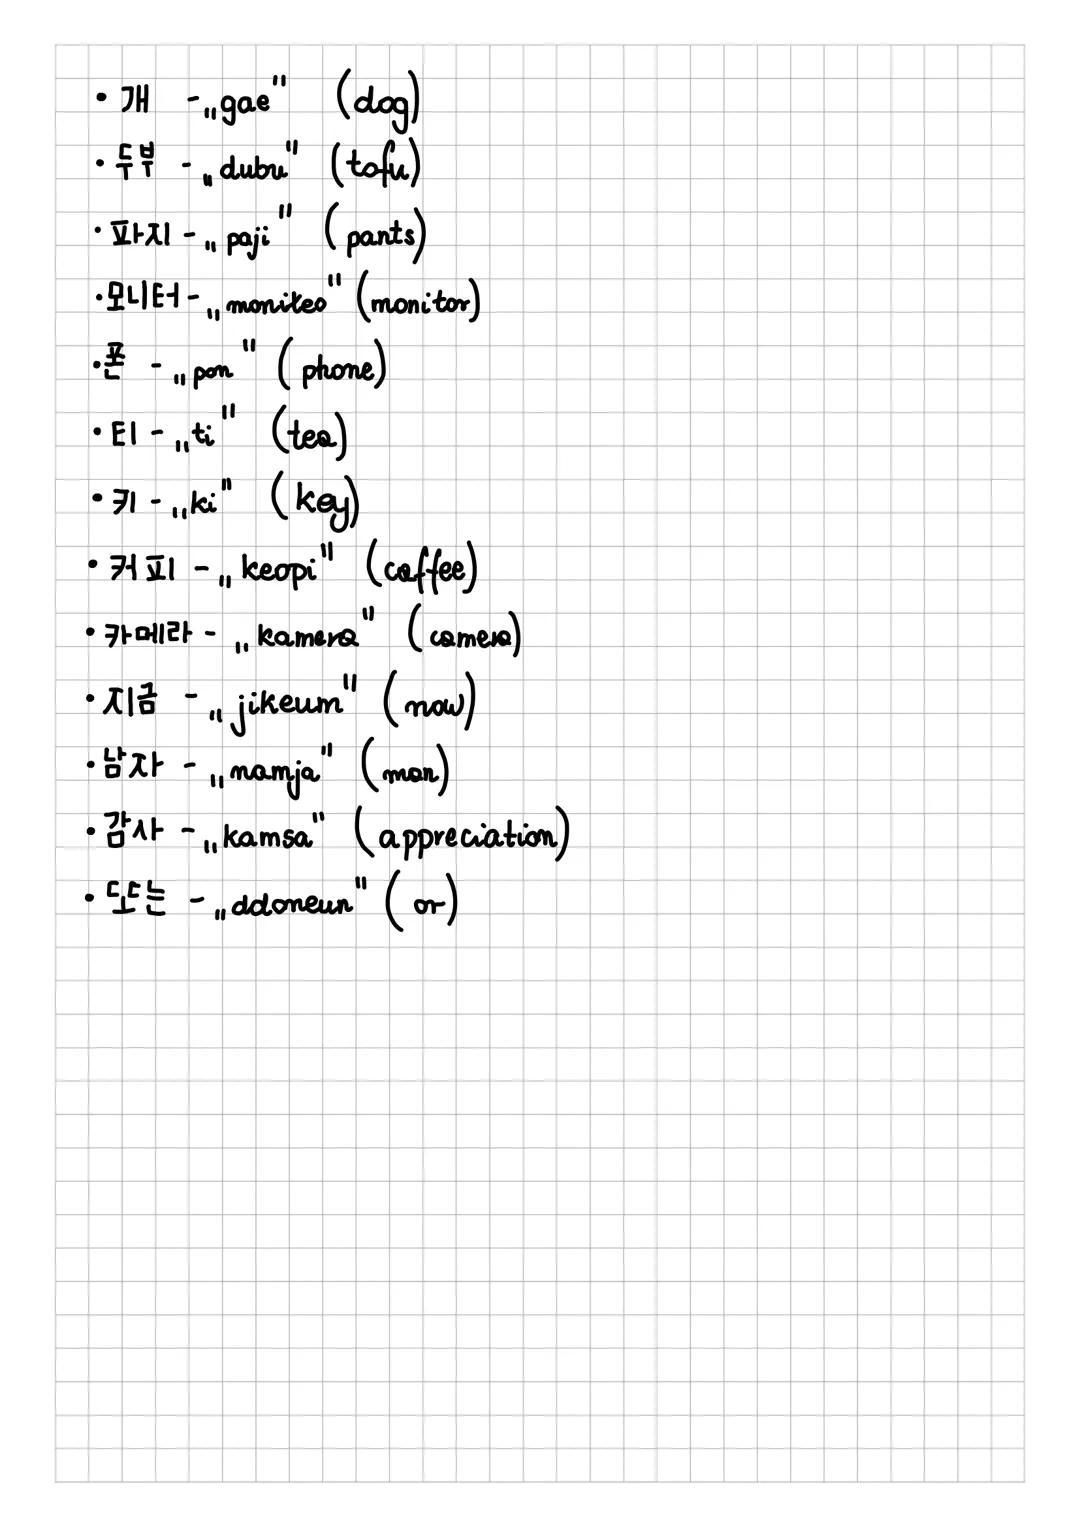 • 개 - „gae" (dog)
• 두부 - „dubu" (tofu)
• 파지 - „paji" (pants)
• 모니터 - „moniteo" (monitor)
• 폰 - „pon" (phone)
• 티 - „ti" (tea)
• 키 - „ki" (key)
• 커피 - „keopi" (coffee)
• 카메라 - „kamera" (camera)
• 지금 - „jikeum" (now)
• 남자 - „namja" (man)
• 감사 - „kamsa" (appreciation)
• 또는 - „ddoneun" (or)